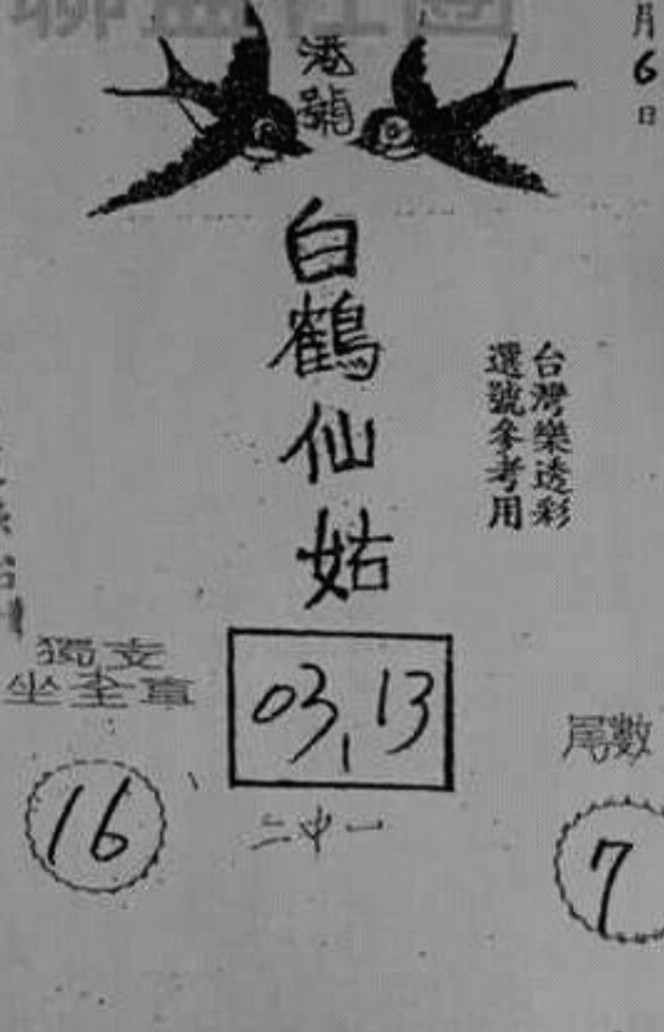 聯盟社團
月6日
港號
白鶴仙姑
台灣樂透彩
選號參考用
獨支
坐全車
03,13
尾數
16
二中一
7